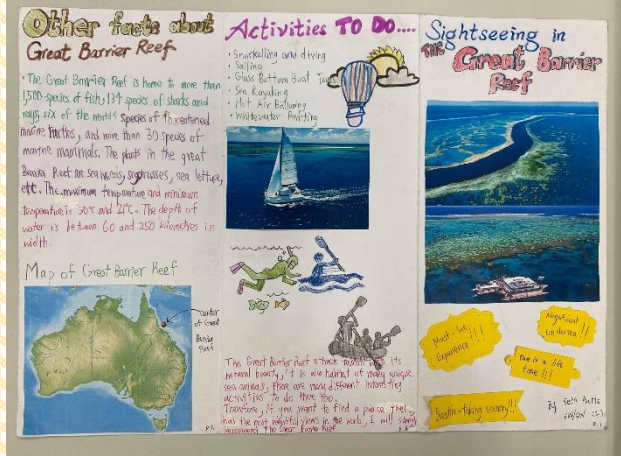 Other facts about
Great Barrier Reef
• The Great Barrier Reef is home to more than
1,500 species of fish, 134 species of sharks and
rays, six of the world's species of threatened
marine turtles, and more than 30 species of
marine mammals. The plants in the great
Barrier Reef are seaweeds, seagrasses, sea lettuce,
etc. The maximum temperature and minimum
temperature is 30°c and 21°c. The depth of
water is between 60 and 250 kilometres in
width.
Map of Great Barrier Reef
center
of Great
Barrier
Reef
P.3
Activities TO DO....
• Snorkelling and diving
• Sailing
• Glass Bottom Boat Tour
• Sea Kayaking
• Hot Air Ballooning
• Whitewater Rafting
The Great Barrier Reef attract tourists its
natural beauty, it is the habitat of many unique
sea animals, there are many different interesting
activities to do there too.
Therefore, if you want to find a place that
has the most beautiful views in the world, I will strongly
recommend the Great Barrier Reef
P.2
Sightseeing in
THE Great Barrier
Reef
Must-See
Experience!!!
Magnificent
Undersea!!
Once in a life
time!!!
Breathe-taking scenery!!!
By
P.1